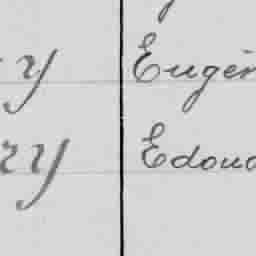 ry Eugèn
ry Edoua